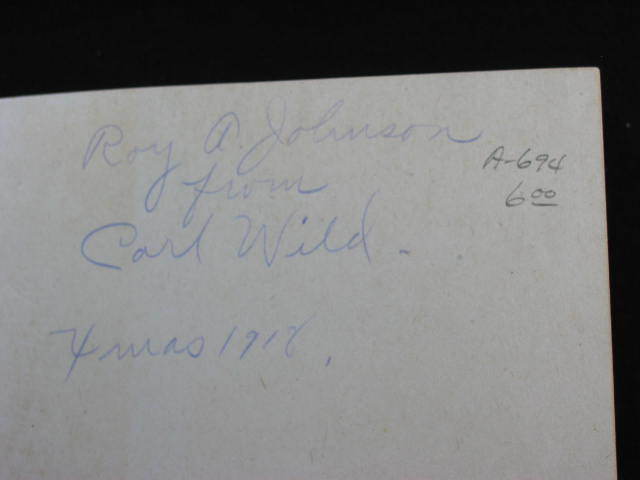 Roy A. Johnson
from
Carl Wild.
Xmas 1918.
A-694
6.00